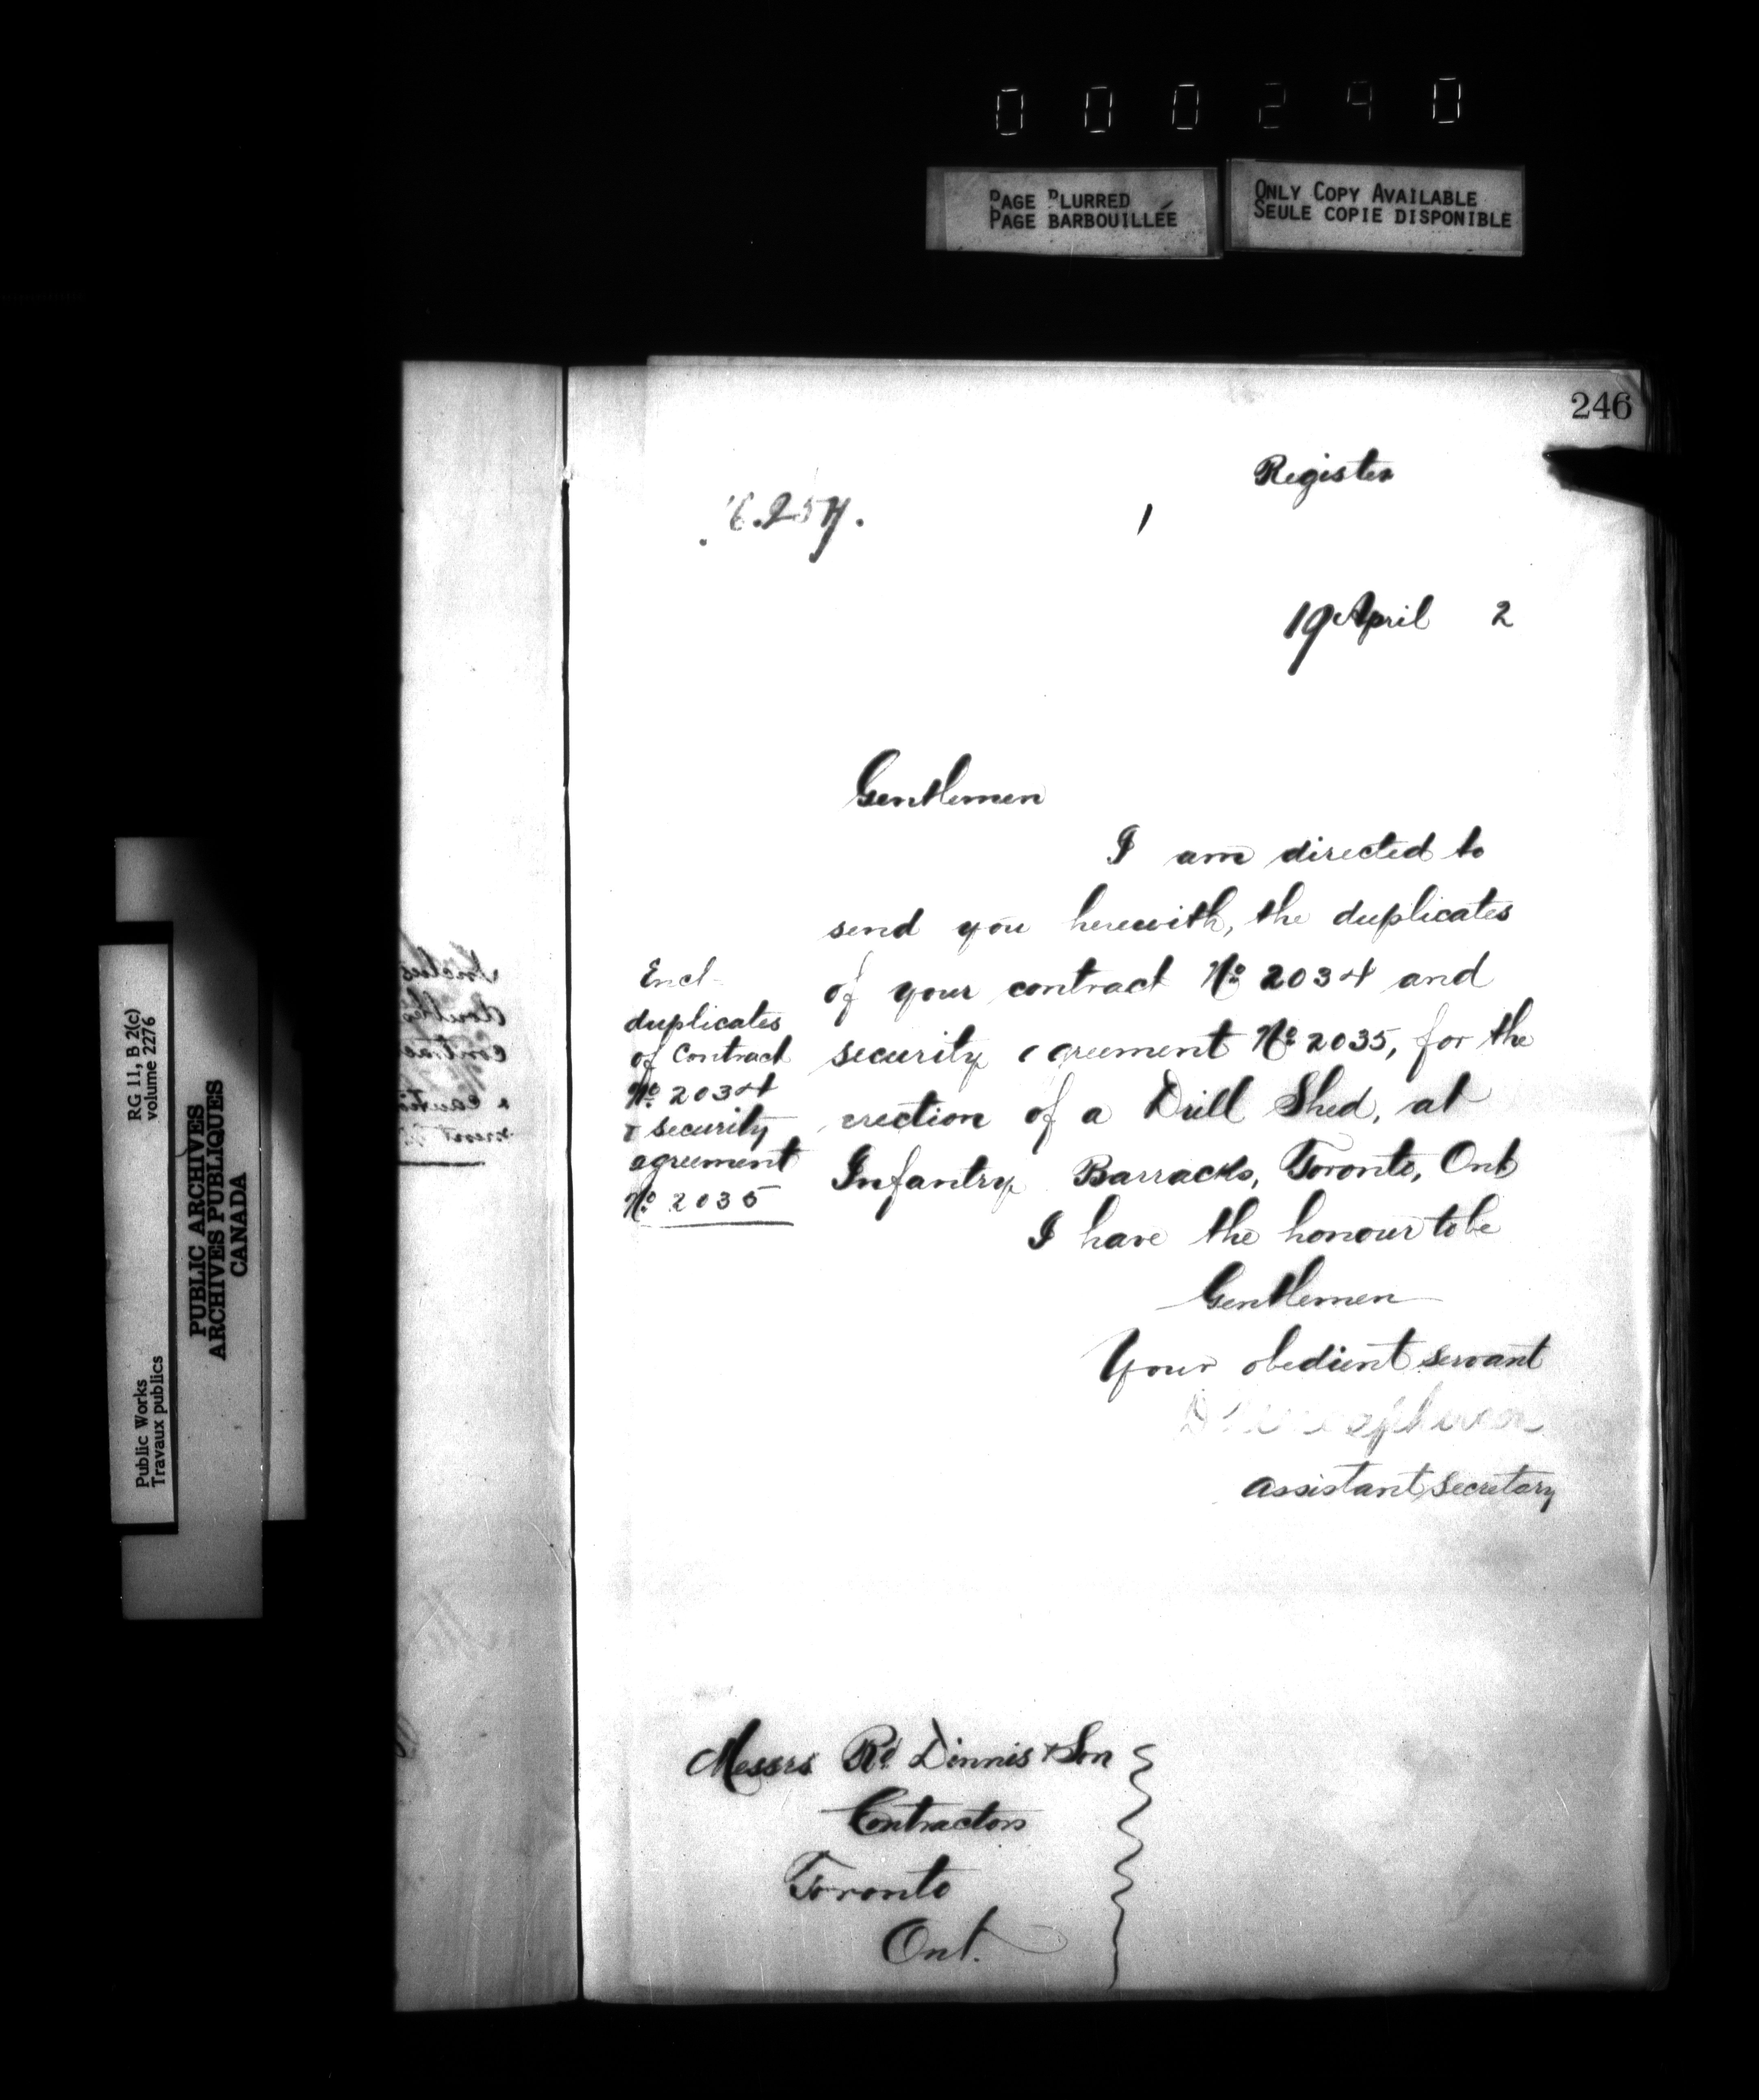 000290
PAGE BLURRED
PAGE BARBOUILLÉE
ONLY COPY AVAILABLE
SEULE COPIE DISPONIBLE
246
Register
19 April 2
Gentlemen
I am directed to
send you herewith, the duplicates
of your contract No. 2034 and
security agreement No. 2035, for the
erection of a Drill Shed, at
Infantry Barracks, Toronto, Ont
I have the honour to be
Gentlemen
Your obedient servant
Assistant Secretary
Encl
duplicates
of Contract
No. 2034
& security
agreement
No. 2035
Messrs Rd Dinnis & Son
Contractors
Toronto
Ont.
RG 11, B 2(c)
volume 2276
Public Works
Travaux publics
PUBLIC ARCHIVES
ARCHIVES PUBLIQUES
CANADA